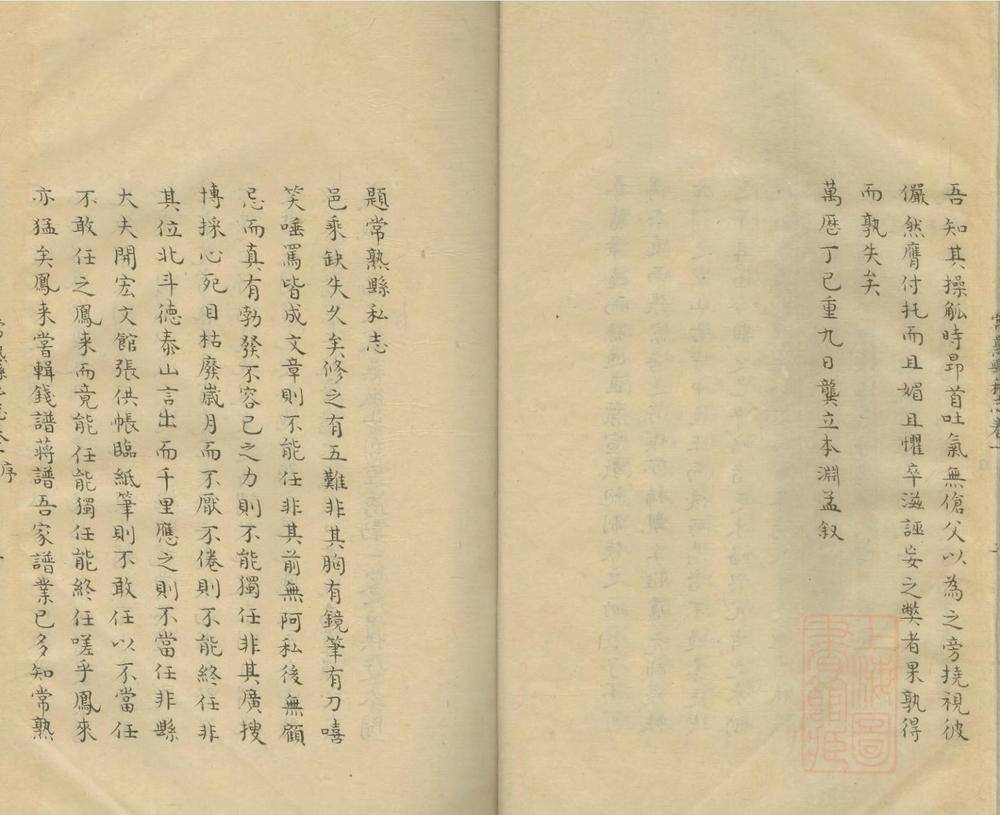 吾知其操觚時昂首吐氣無傖父以為之旁撓視彼
儼然膺付托而且媚且懼卒滋誣妄之弊者果孰得
而孰失矣
萬厯丁巳重九日龔立本淵孟叙
題常熟縣私志
邑乘缺失久矣修之有五難非其胸有鏡筆有刀嘻
笑唾罵皆成文章則不能任非其前無阿私後無顧
忌而真有勃發不容已之力則不能獨任非其廣搜
博採心死目枯廢歲月而不厭不倦則不能終任非
其位北斗德泰山言出而千里應之則不當任非縣
大夫開宏文館張供帳臨紙筆則不敢任以不當任
不敢任之鳳来而竟能任能獨任能終任嗟乎鳳來
亦猛矣鳳来嘗輯錢譜蔣譜吾家譜業已多知常熟